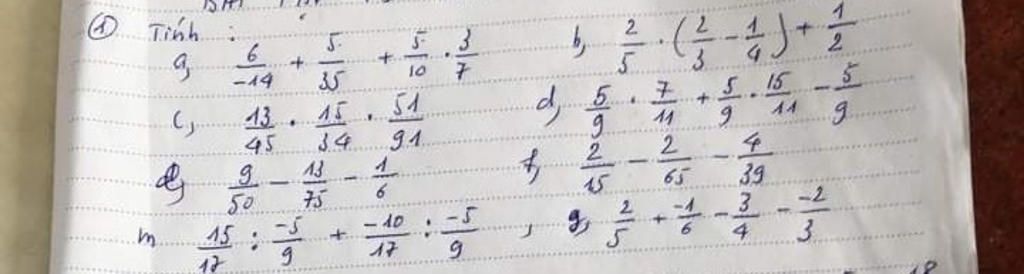 ① Tính :
a, 6/-14 + 5/35 + 5/10 . 3/7 b, 2/5 . (2/3 - 1/4) + 1/2
c, 13/45 . 15/34 . 51/91 d, 5/9 . 7/11 + 5/9 . 15/11 - 5/9
e, 9/50 - 13/75 - 1/6 f, 2/15 - 2/65 - 4/39
m 15/17 : -5/9 + -10/17 : -5/9 , g, 2/5 + -1/6 - 3/4 - -2/3
18